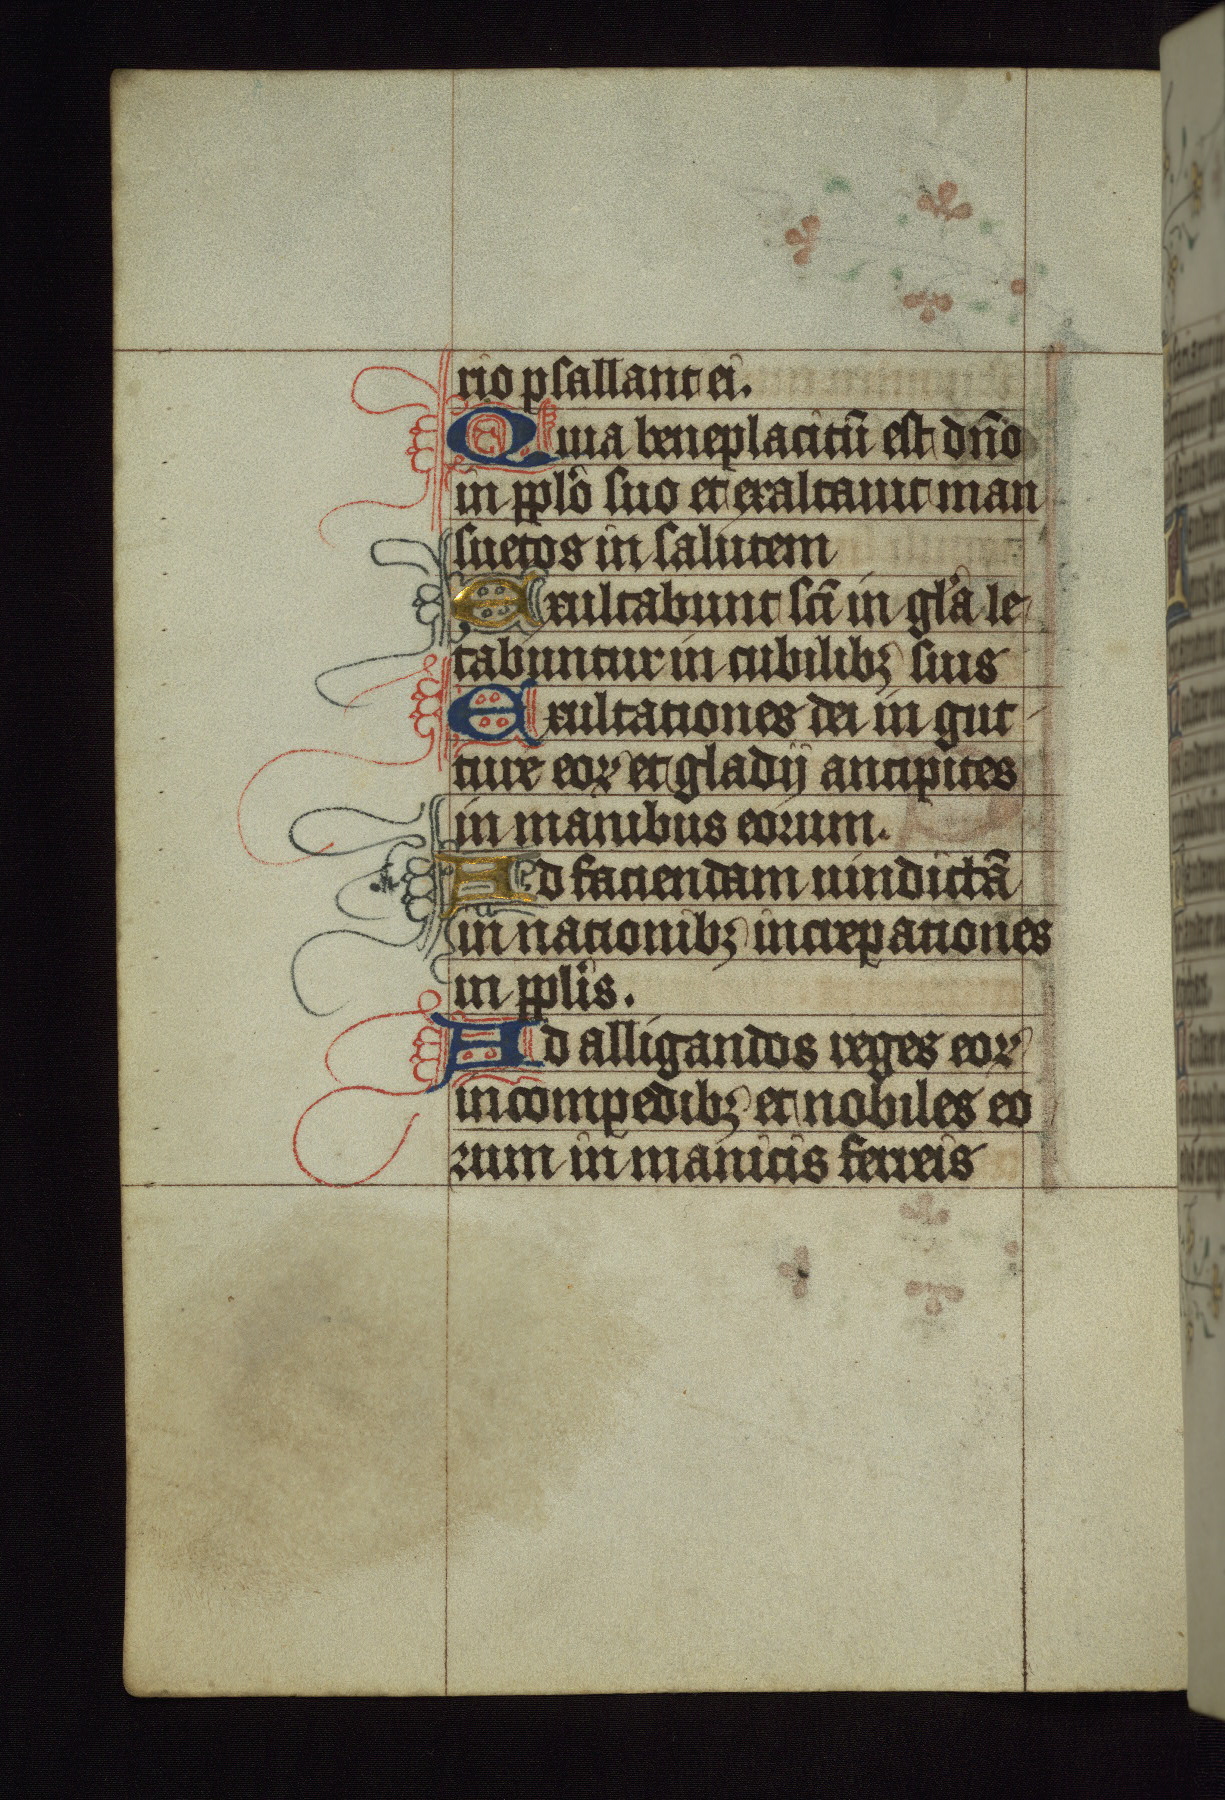 rio psallant ei.
Quia beneplacitū est dño
in pplo suo et exaltauit man
suetos in salutem
Exultabunt scī in gl'a le
tabuntur in cubilibꝫ suis
Exultationes dei in gut
ture eoꝝ et gladij ancipites
in manibus eorum.
Ad faciendam uindictā
in nationibꝫ increpationes
in pplis.
Ad alligandos reges eoꝝ
in compedibꝫ et nobiles eo
rum in manicis ferreis